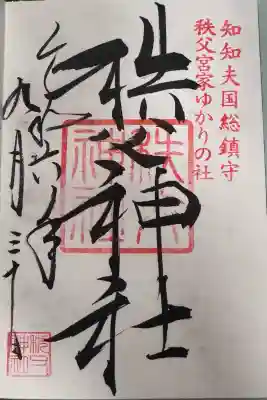 知知夫国総鎮守
秩父宮家ゆかりの社
秩父神社
秩父神社
九月三十